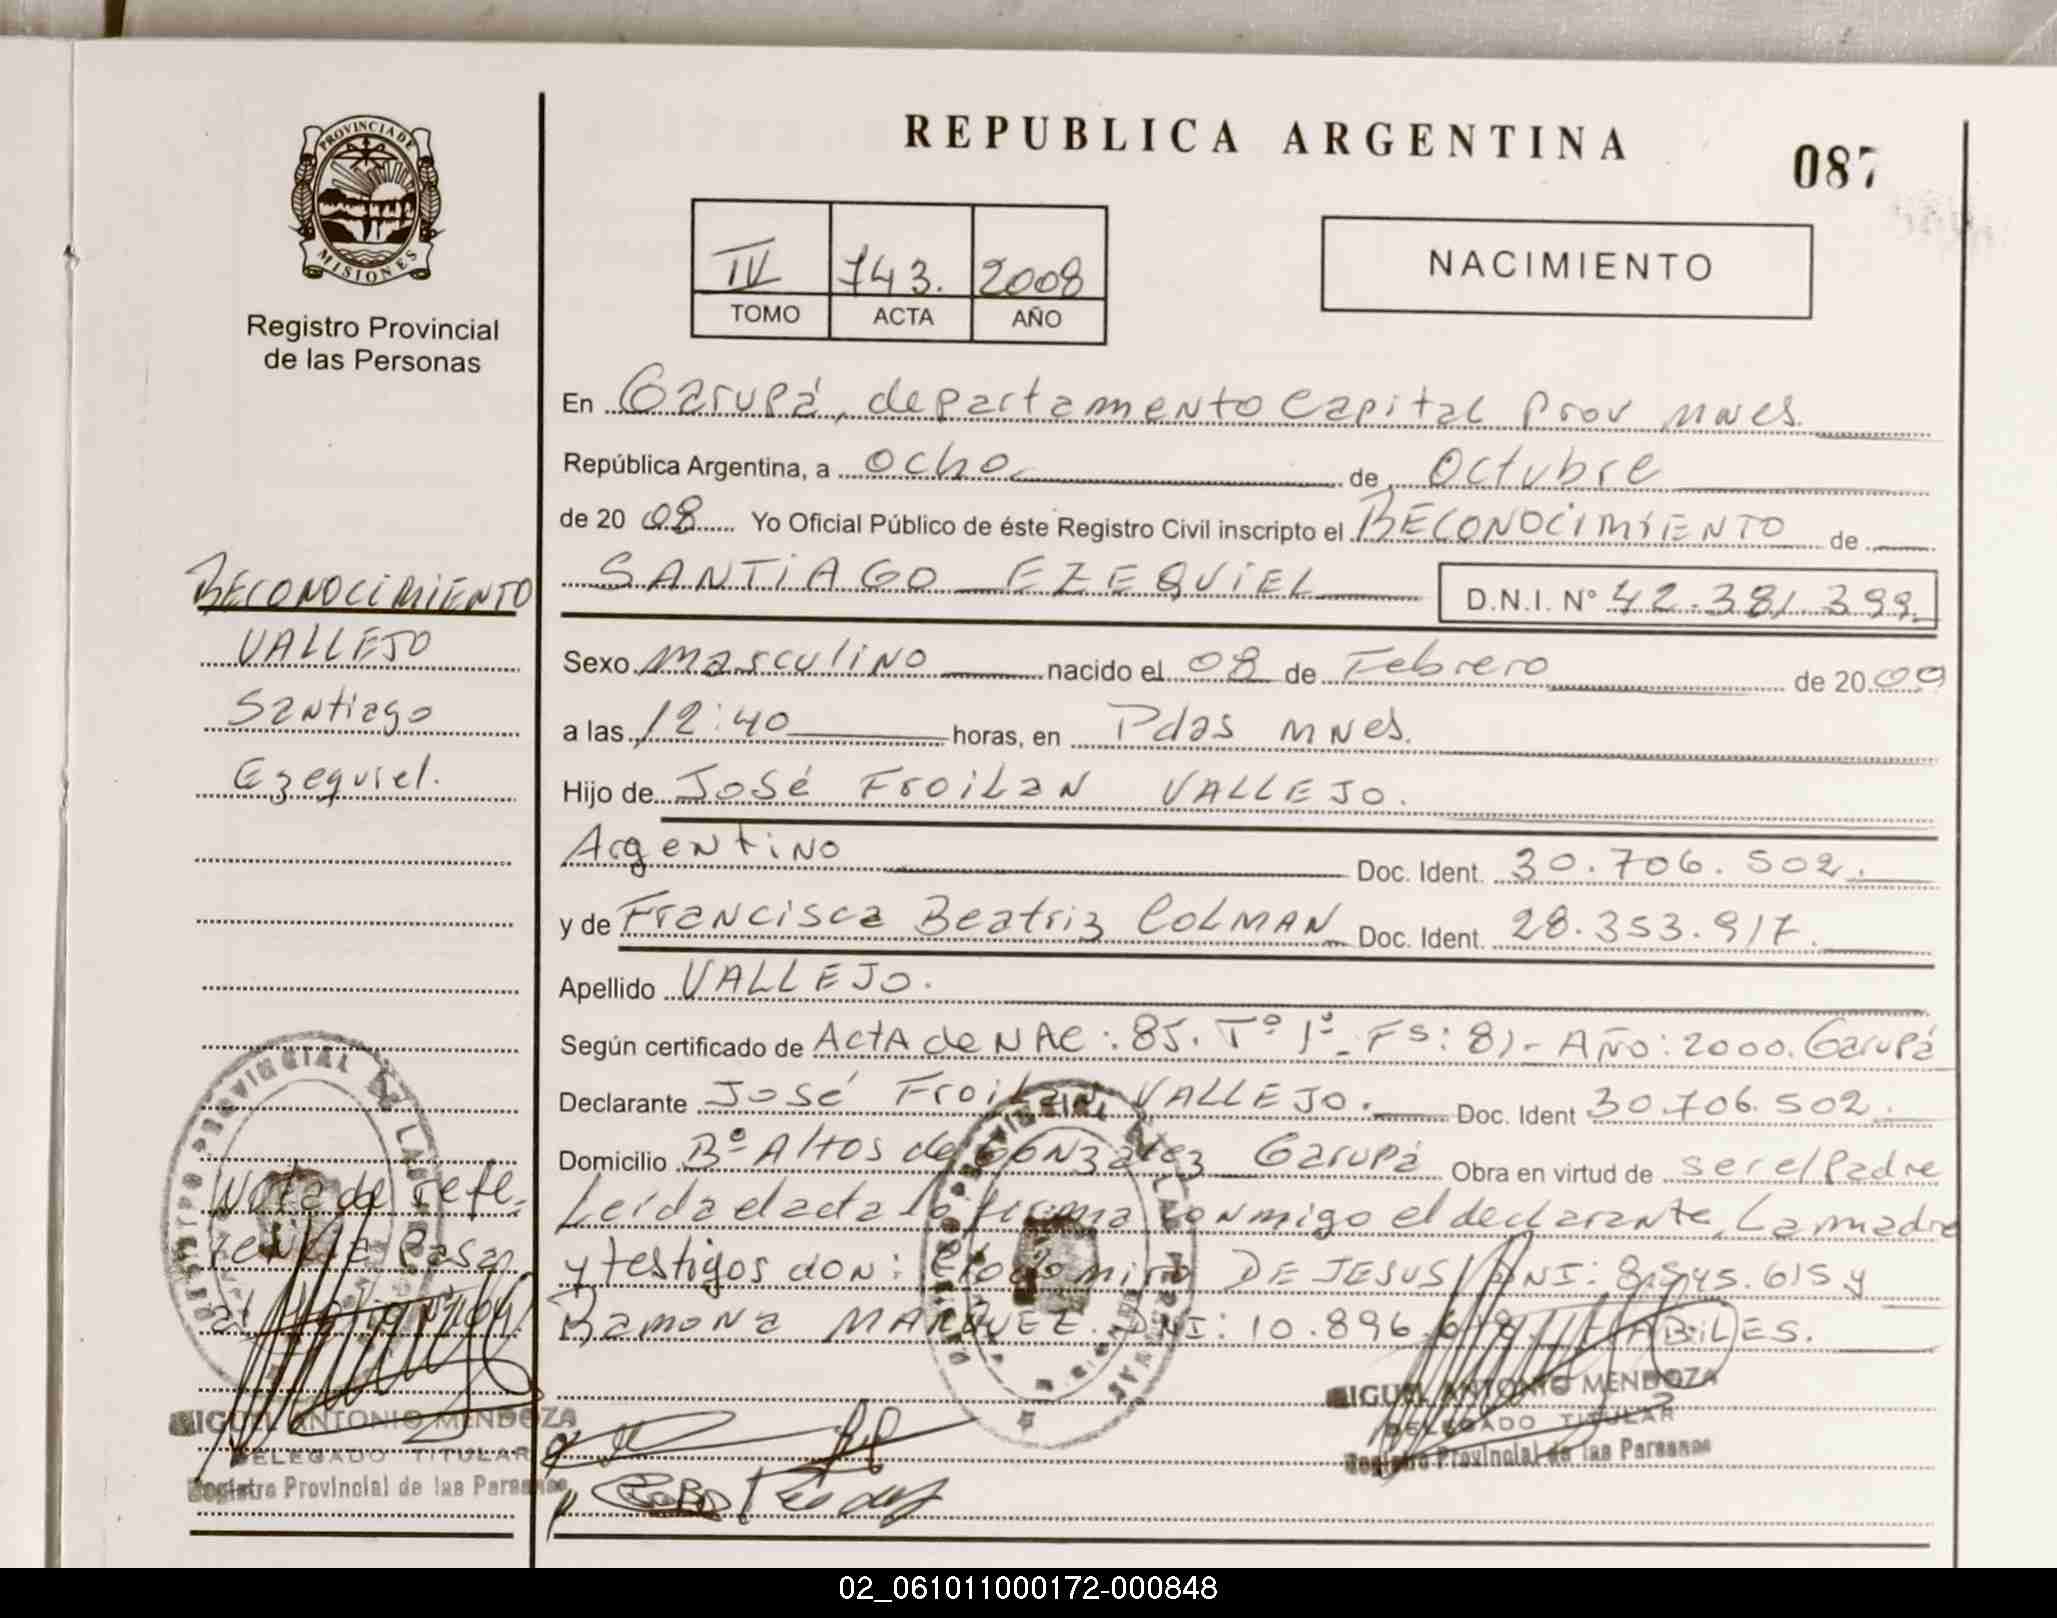 REPUBLICA ARGENTINA
087
PROVINCIA DE
MISIONES
Registro Provincial
de las Personas
IV 743. 2008
TOMO ACTA AÑO
NACIMIENTO
En Garupá, departamento Capital Prov Mnes.
República Argentina, a ocho de Octubre
de 20 08 Yo Oficial Público de éste Registro Civil inscripto el RECONOCIMIENTO de
SANTIAGO EZEQUIEL D.N.I. Nº 42.381.399
Sexo masculino nacido el 08 de Febrero de 20 00
a las 12:40 horas, en Pdas Mnes.
Hijo de José Froilan VALLEJO.
Argentino Doc. Ident. 30.706.502.
y de Francisca Beatriz COLMAN Doc. Ident. 28.353.917.
Apellido VALLEJO.
Según certificado de Acta de NAC: 85. Tº 1º- Fs: 81- Año: 2000. Garupá
Declarante José Froilan VALLEJO. Doc. Ident 30.706.502.
Domicilio Bº Altos de Gonzalez Garupá Obra en virtud de ser el Padre
Leída el acta la firma conmigo el declarante, La madre
y testigos don: Clodomiro DE JESUS DNI: 8.545.615 y
Ramona MARQUEZ. DNI: 10.896. HABILES.
MIGUEL ANTONIO MENDOZA
DELEGADO TITULAR
Registro Provincial de las Personas
RECONOCIMIENTO
VALLEJO
Santiago
Ezequiel.
REGISTRO PROVINCIAL DE LAS
Nota de refe-
rencia Pasa
al
MIGUEL ANTONIO MENDOZA
DELEGADO TITULAR
Registro Provincial de las Personas
02_061011000172-000848